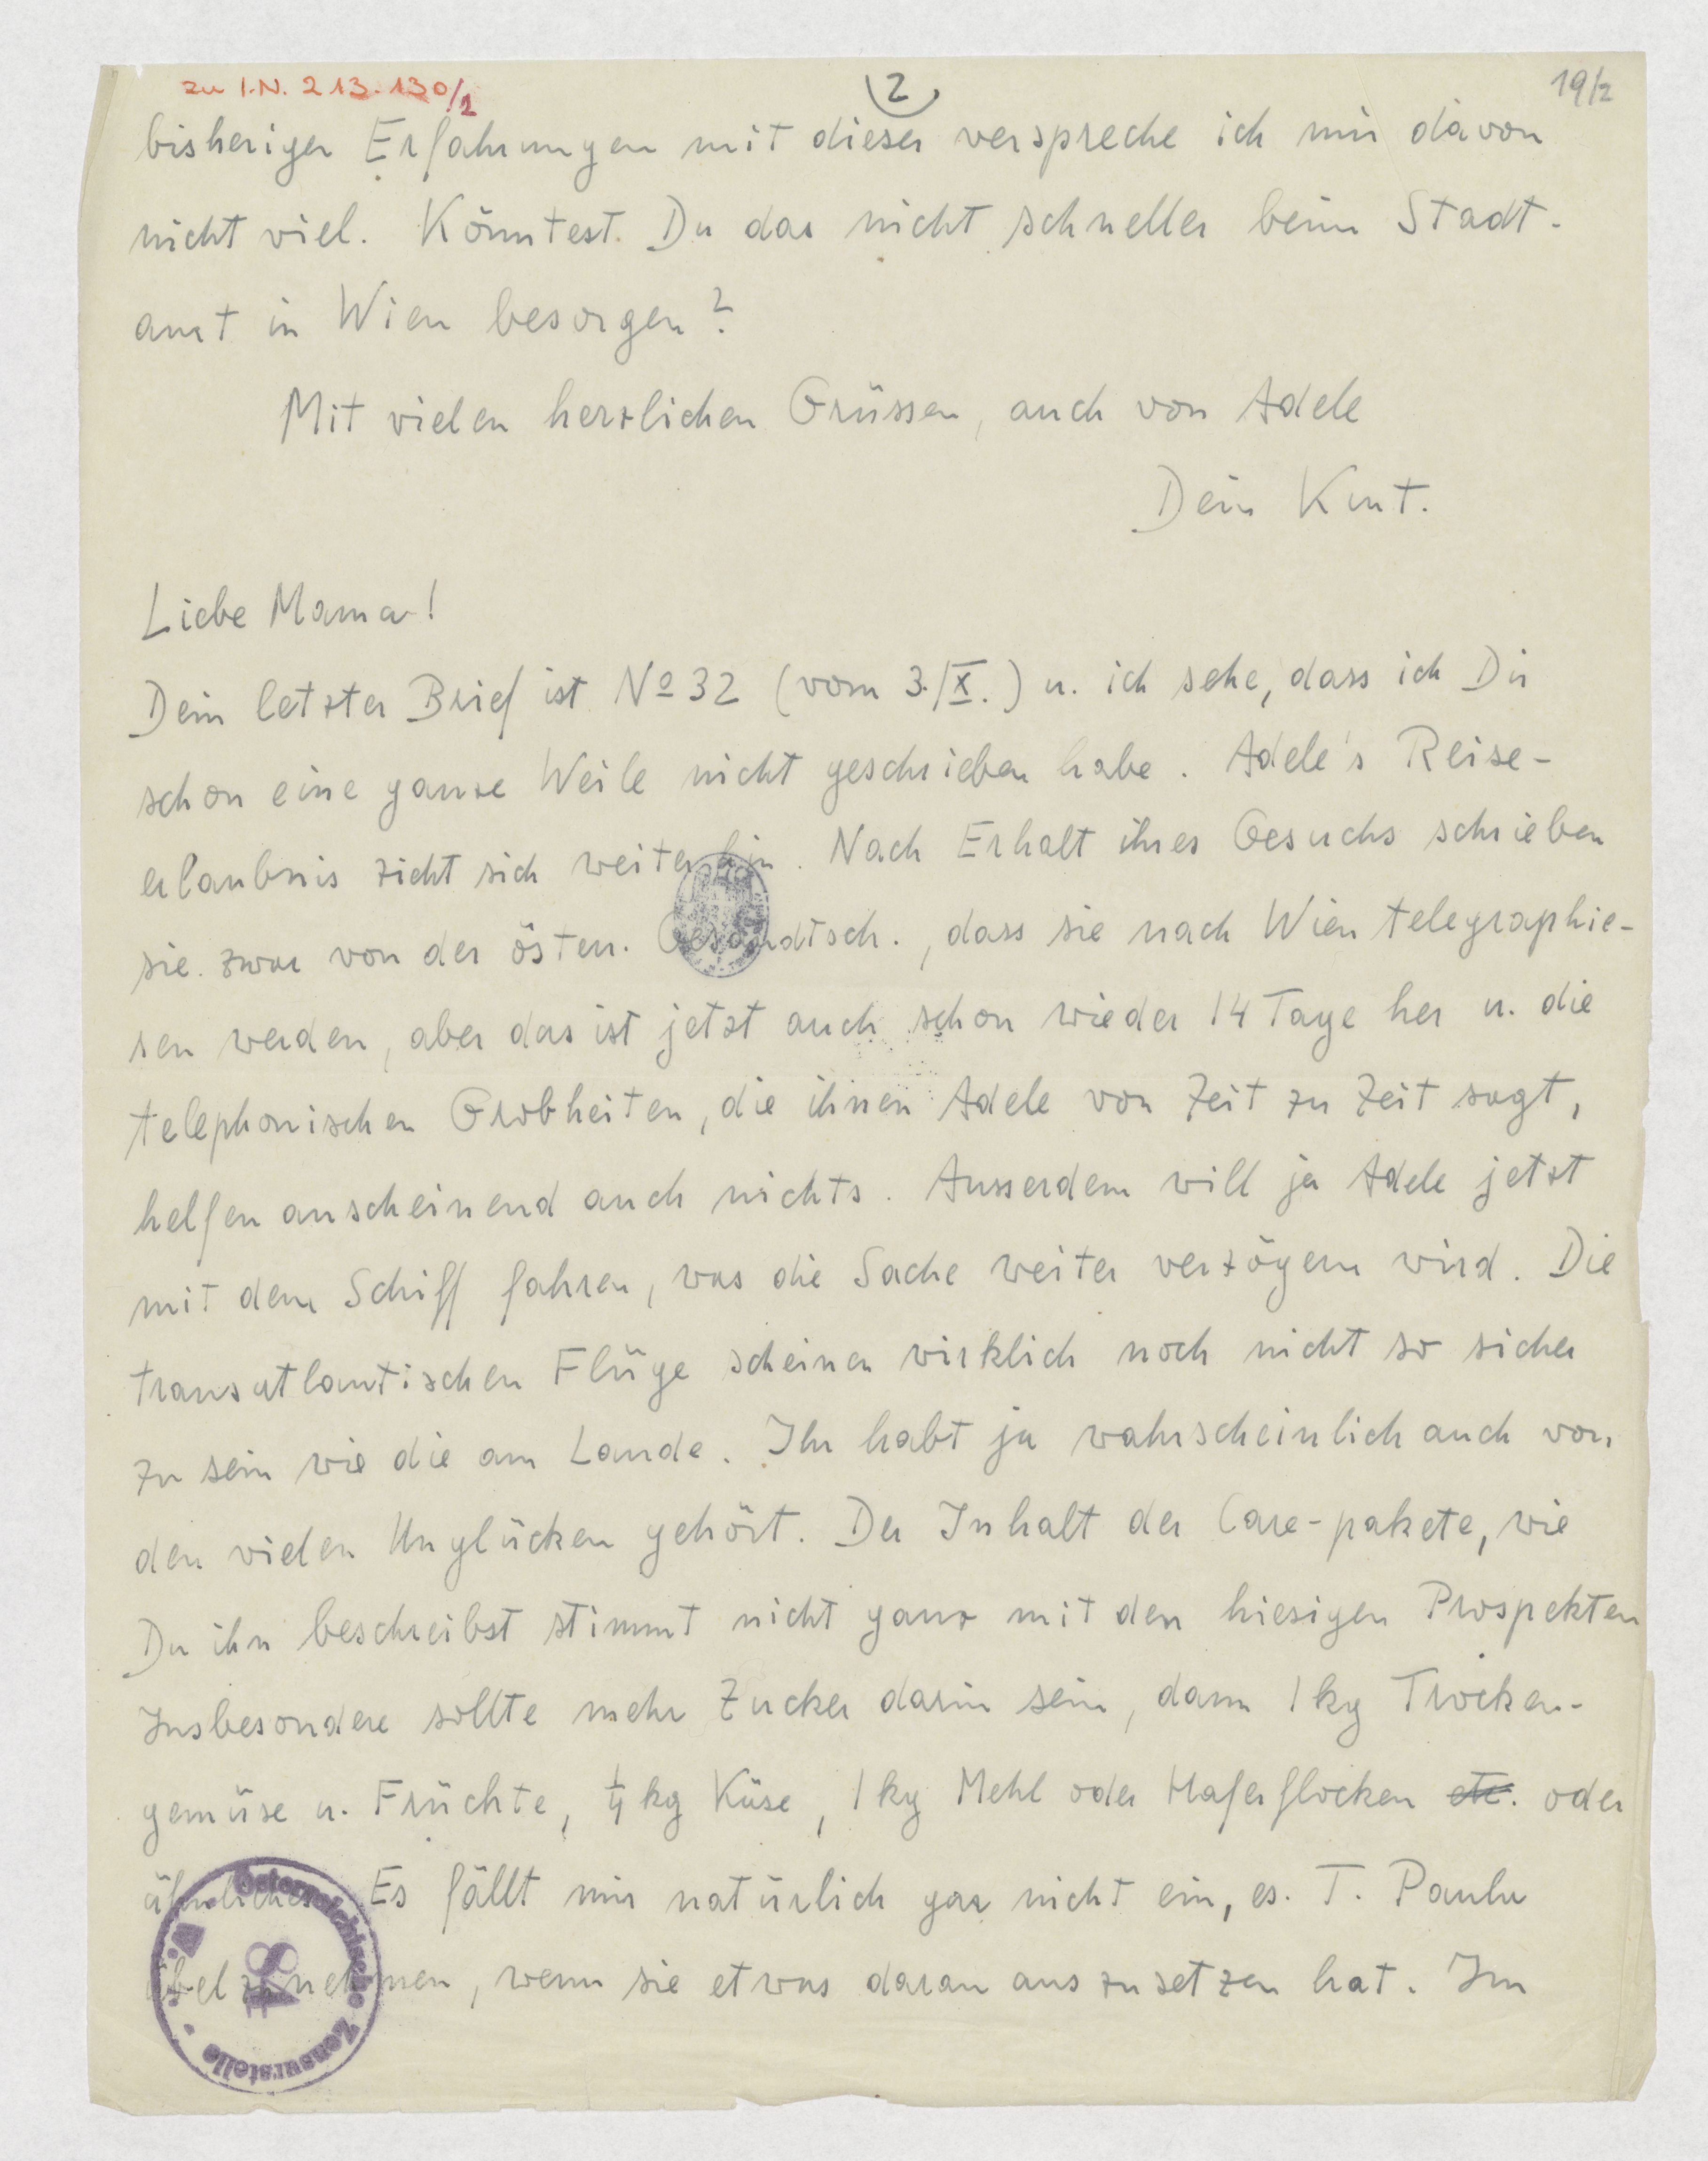 zu I.N. 213.130/1
2
19/2
bisherigen Erfahrungen mit dieser verspreche ich mir davon
nicht viel. Könntest Du das nicht schneller beim Stadt-
amt in Wien besorgen?
Mit vielen herzlichen Grüssen, auch von Adele
Dein Kurt.
Liebe Mama!
Dein letzter Brief ist No 32 (vom 3./X.) u. ich sehe, dass ich Dir
schon eine ganze Weile nicht geschrieben habe. Adele's Reise-
erlaubnis zieht sich weiter hin. Nach Erhalt ihres Gesuchs schrieben
sie zwar von der österr. Gesandtsch., dass sie nach Wien telegraphie-
ren werden, aber das ist jetzt auch schon wieder 14 Tage her u. die
telephonischen Grobheiten, die ihnen Adele von Zeit zu Zeit sagt,
helfen anscheinend auch nichts. Ausserdem will ja Adele jetzt
mit dem Schiff fahren, was die Sache weiter verzögern wird. Die
transatlantischen Flüge scheinen wirklich noch nicht so sicher
zu sein wie die am Lande. Ihr habt ja wahrscheinlich auch von
den vielen Unglücken gehört. Der Inhalt der Care-pakete, wie
Du ihn beschreibst stimmt nicht ganz mit den hiesigen Prospekten
Insbesondere sollte mehr Zucker darin sein, dann 1 kg Trocken-
gemüse u. Früchte, 1/4 kg Käse, 1 kg Mehl oder Haferflocken etc. oder
ähnliches. Es fällt mir natürlich gar nicht ein, es T. Paula
übel zu nehmen, wenn sie etwas daran auszusetzen hat. Im
Österreichische Zensurstelle